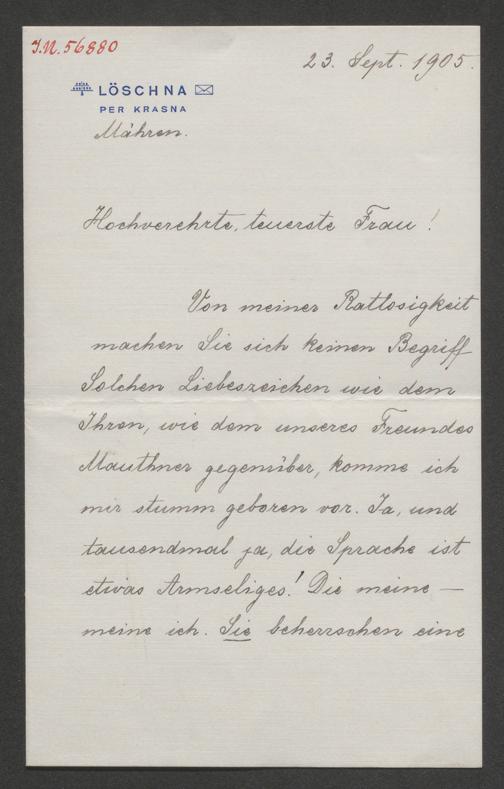 I.N. 56880
23. Sept. 1905.
LÖSCHNA
PER KRASNA
Mähren.
Hochverehrte, teuerste Frau!
Von meiner Ratlosigkeit
machen Sie sich keinen Begriff
Solchen Liebeszeichen wie dem
Ihren, wie dem unseres Freundes
Mauthner gegenüber, komme ich
mir stumm geboren vor. Ja, und
tausendmal ja, die Sprache ist
etwas Armseliges! Die meine —
meine ich. Sie beherrschen eine